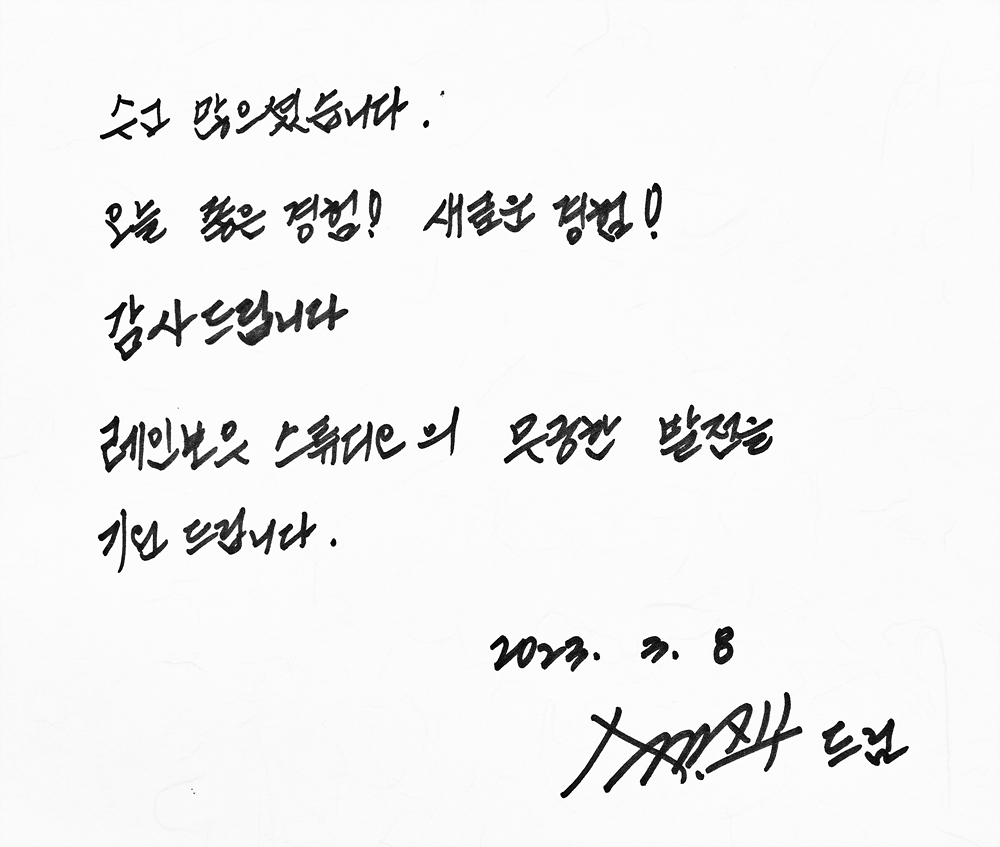 수고 많으셨습니다.
오늘 좋은 경험! 새로운 경험!
감사드립니다
레인보우 스튜디오의 무궁한 발전을
기원 드립니다.
2023. 3. 8
드림